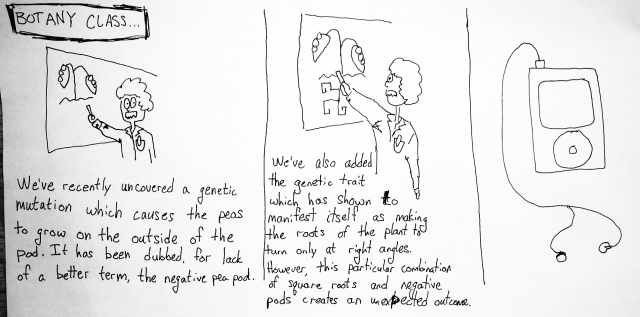 BOTANY CLASS...
We've recently uncovered a genetic
mutation which causes the peas
to grow on the outside of the
pod. It has been dubbed, for lack
of a better term, the negative pea pod.
We've also added
the genetic trait
which has shown to
manifest itself as making
the roots of the plant to
turn only at right angles.
However, this particular combination
of square roots and negative
pods creates an unexpected outcome.